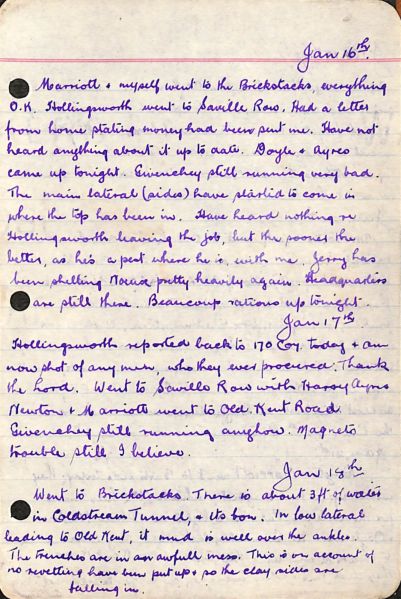 Jan 16th.
Marriott + myself went to the Brickstacks, everything
O.K. Hollingsworth went to Saville Row. Had a letter
from home stating money had been sent me. Have not
heard anything about it up to date. Doyle + Ayres
came up tonight. Givenchey still running very bad.
The main lateral (sides) have started to come in
where the top has been in. Have heard nothing re
Hollingsworth leaving the job, but the sooner the
better, as he's a pest where he is, with me. Jerry has
been shelling pretty heavily again. Headquarters
are still there. Beaucoup rations up tonight.
Jan 17th
Hollingsworth reported back to 170 Coy. today + am
now shot of any men, who they ever procured. Thank
the Lord. Went to Saville Row with Harry Ayres
Newton + Marriott went to Old Kent Road.
Givenchey still running anyhow. Magneto
trouble still I believe.
Jan 18th
Went to Brickstacks. There is about 3ft of water
in Coldstream Tunnel, + its bon. In low lateral
leading to Old Kent, it mud is well over the ankles.
The trenches are in an awfull mess. This is on account of
no revetting have been put up + so the clay sides are
falling in.